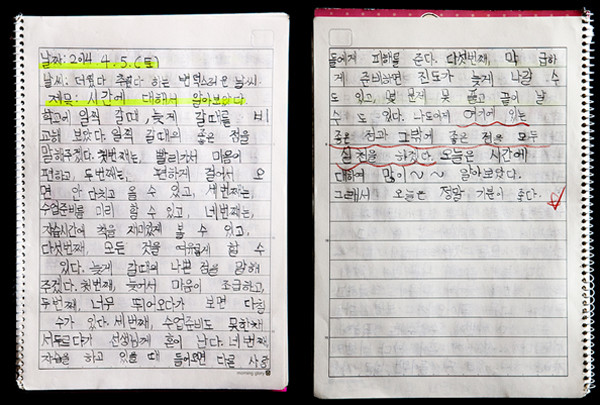 날짜: 2014 4. 5. (토)
날씨: 더웠다 추웠다 하는 변덕스러운 날씨.
제목: 시간에 대해서 알아보았다.
학교에 일찍 갈때, 늦게 갈때를 비
교해 보았다. 일찍 갈때의 좋은 점을
말해주겠다. 첫번째는, 빨리가서 마음이
편하고, 두번째는, 편하게 걸어서 오
면 안 다치고 올 수 있고, 세번째는,
수업준비를 미리 할 수 있고, 네번째는,
자습시간에 책을 재미있게 볼 수 있고,
다섯번째, 모든 것을 여유롭게 할 수
있다. 늦게 갈때의 나쁜 점을 말해
주겠다. 첫번째, 늦어서 마음이 조급하고,
두번째, 너무 뛰어오다가 보면 다칠
수가 있다. 세번째, 수업준비도 못한채
서두르다가 선생님께 혼이 난다. 네번째
자습을 하고 있을 때 들어오면 다른 사람
morning glory
들에게 피해를 준다. 다섯번째, 막 급하
게 준비하면 진도가 늦게 나갈 수
도 있고, 몇 문제 못 풀고 끝이 날
수 도 있다. 나도이제 여기에 있는
좋은 점과 그밖에 좋은 점을 모두
실천을 하겠다. 오늘은 시간에
대하여 많이~~ 알아보았다.
그래서 오늘은 정말 기분이 좋다.